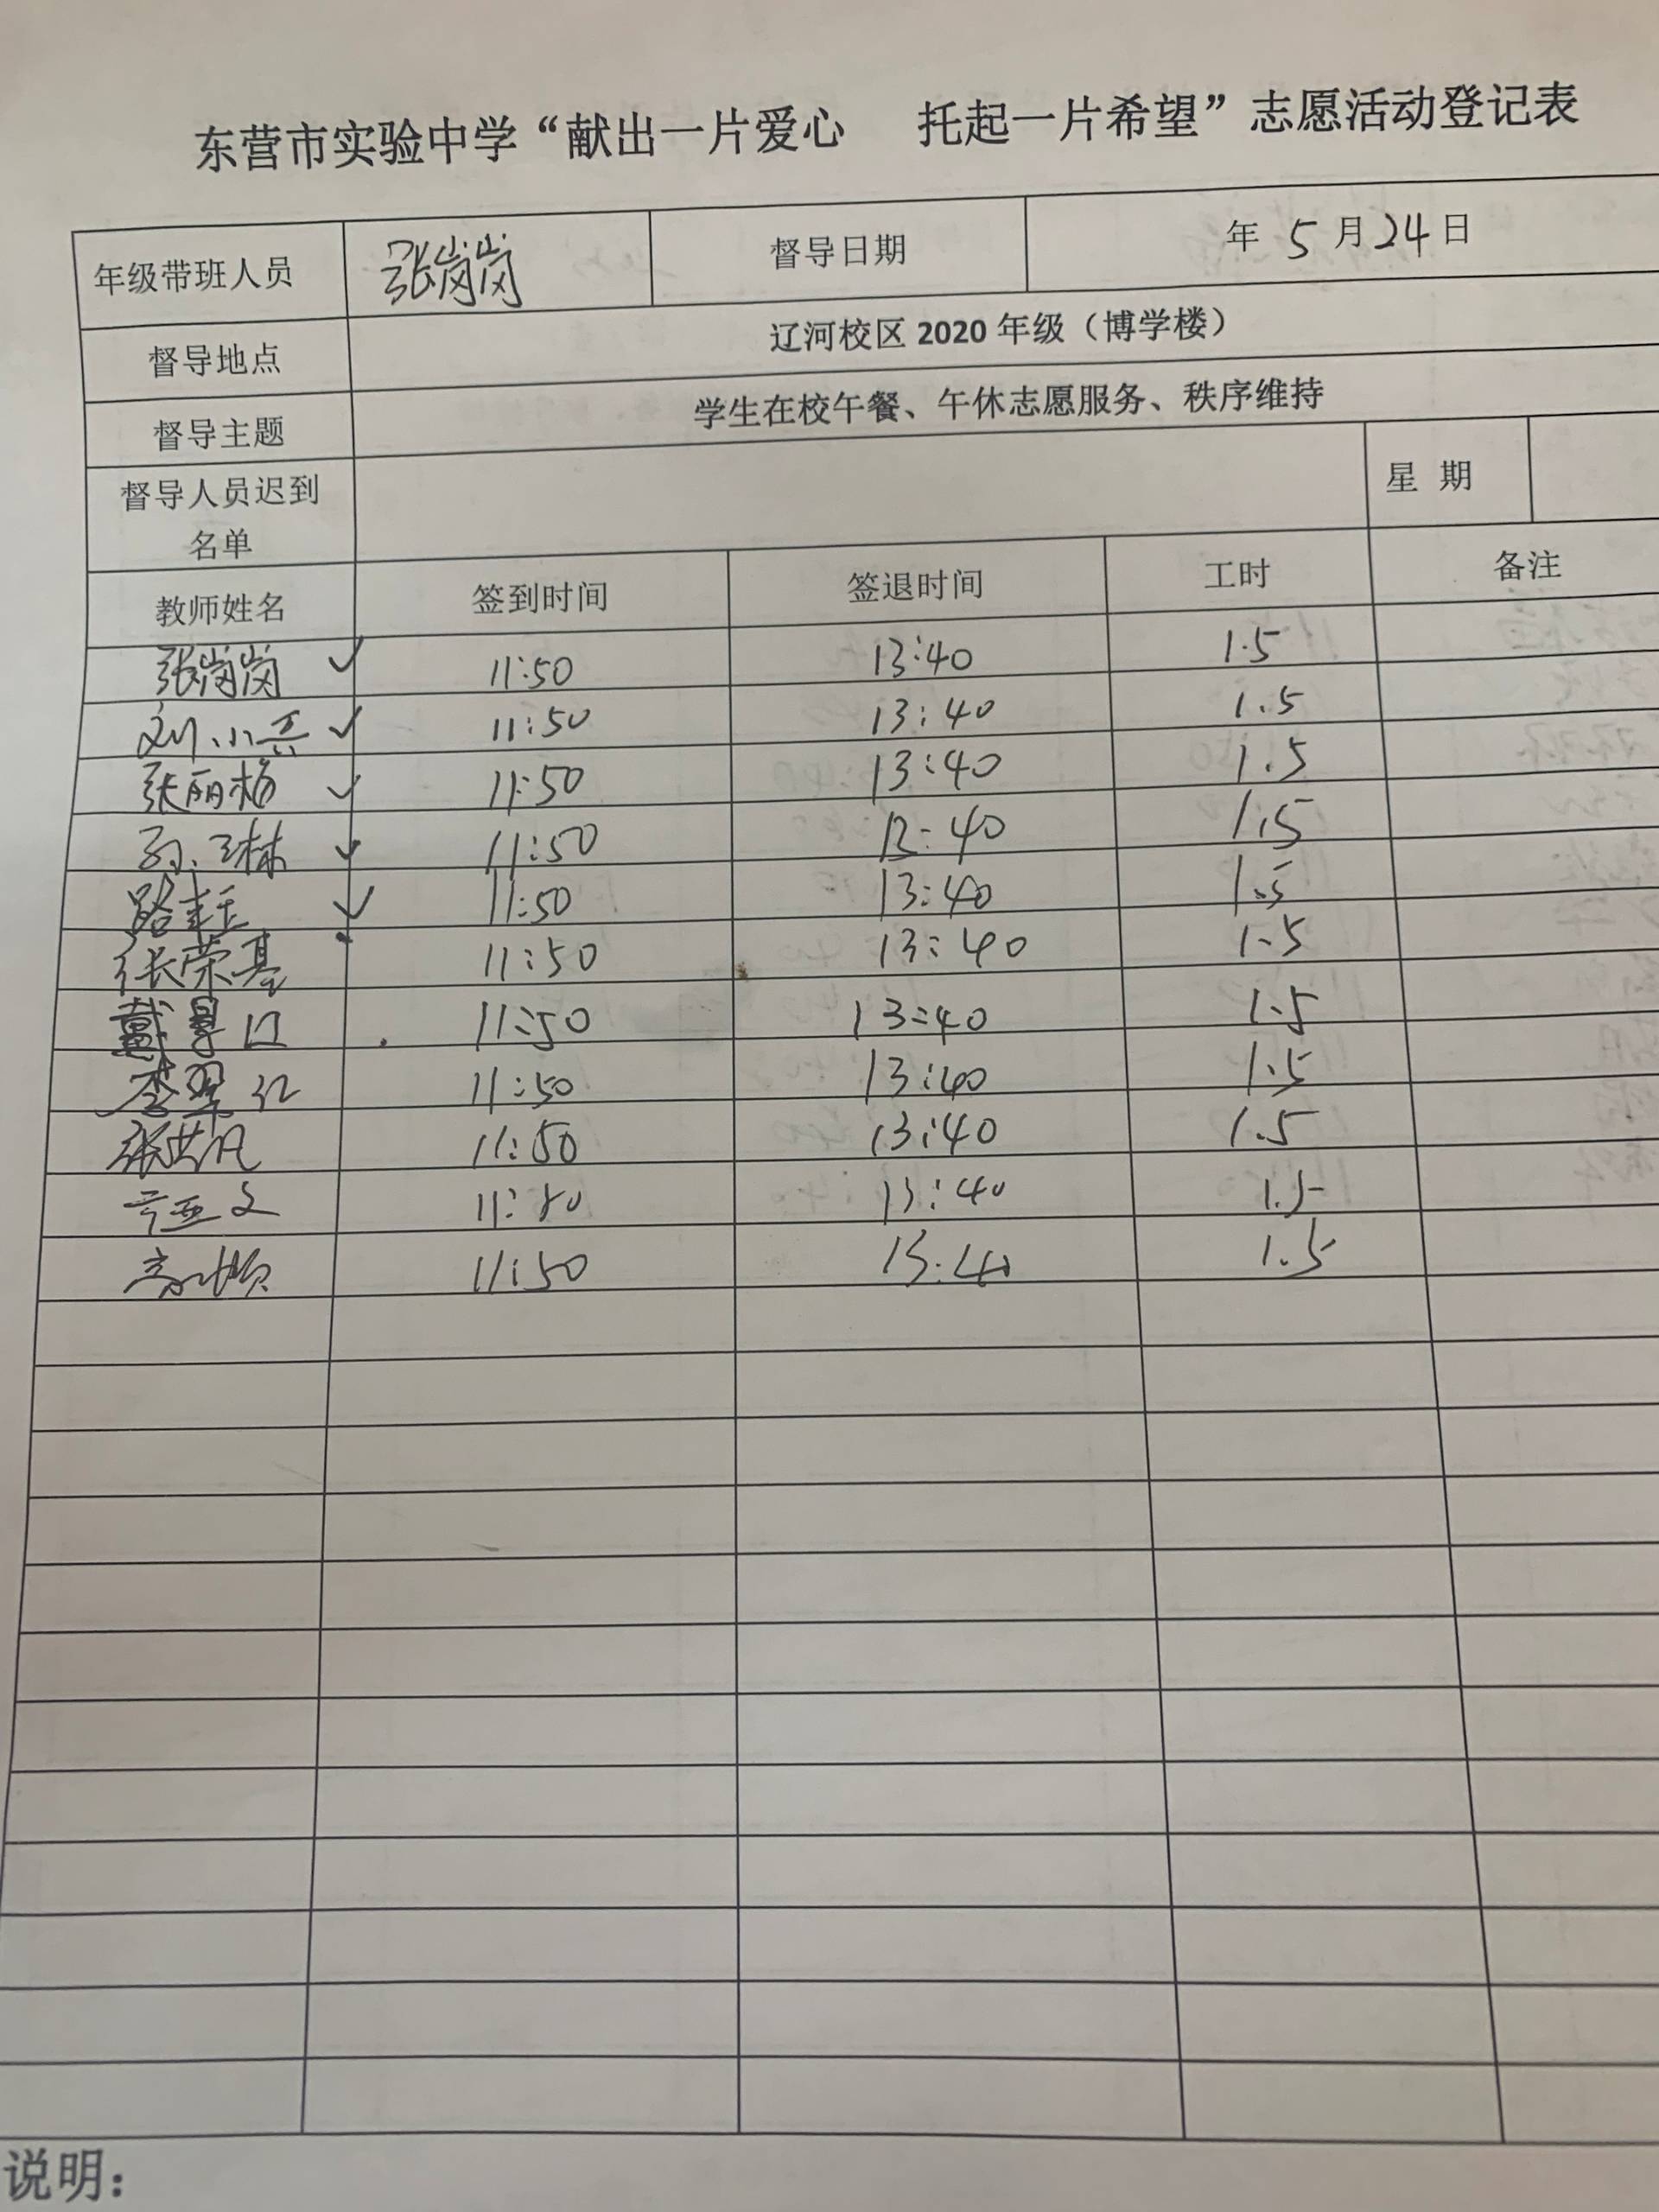 东营市实验中学“献出一片爱心 托起一片希望”志愿活动登记表
年级带班人员 张岗岗 督导日期 年 5 月 24 日
督导地点 辽河校区 2020 年级（博学楼）
督导主题 学生在校午餐、午休志愿服务、秩序维持
督导人员迟到名单 星 期
教师姓名 签到时间 签退时间 工时 备注
张岗岗 ✓ 11:50 13:40 1.5
刘小 ✓ 11:50 13:40 1.5
张丽杨 ✓ 11:50 13:40 1.5
孙 ✓ 11:50 13:40 1.5
路 ✓ 11:50 13:40 1.5
张荣基 11:50 13:40 1.5
戴 11:50 13:40 1.5
李翠红 11:50 13:40 1.5
张 11:50 13:40 1.5
亚文 11:50 13:40 1.5
11:50 13:40 1.5
说明：